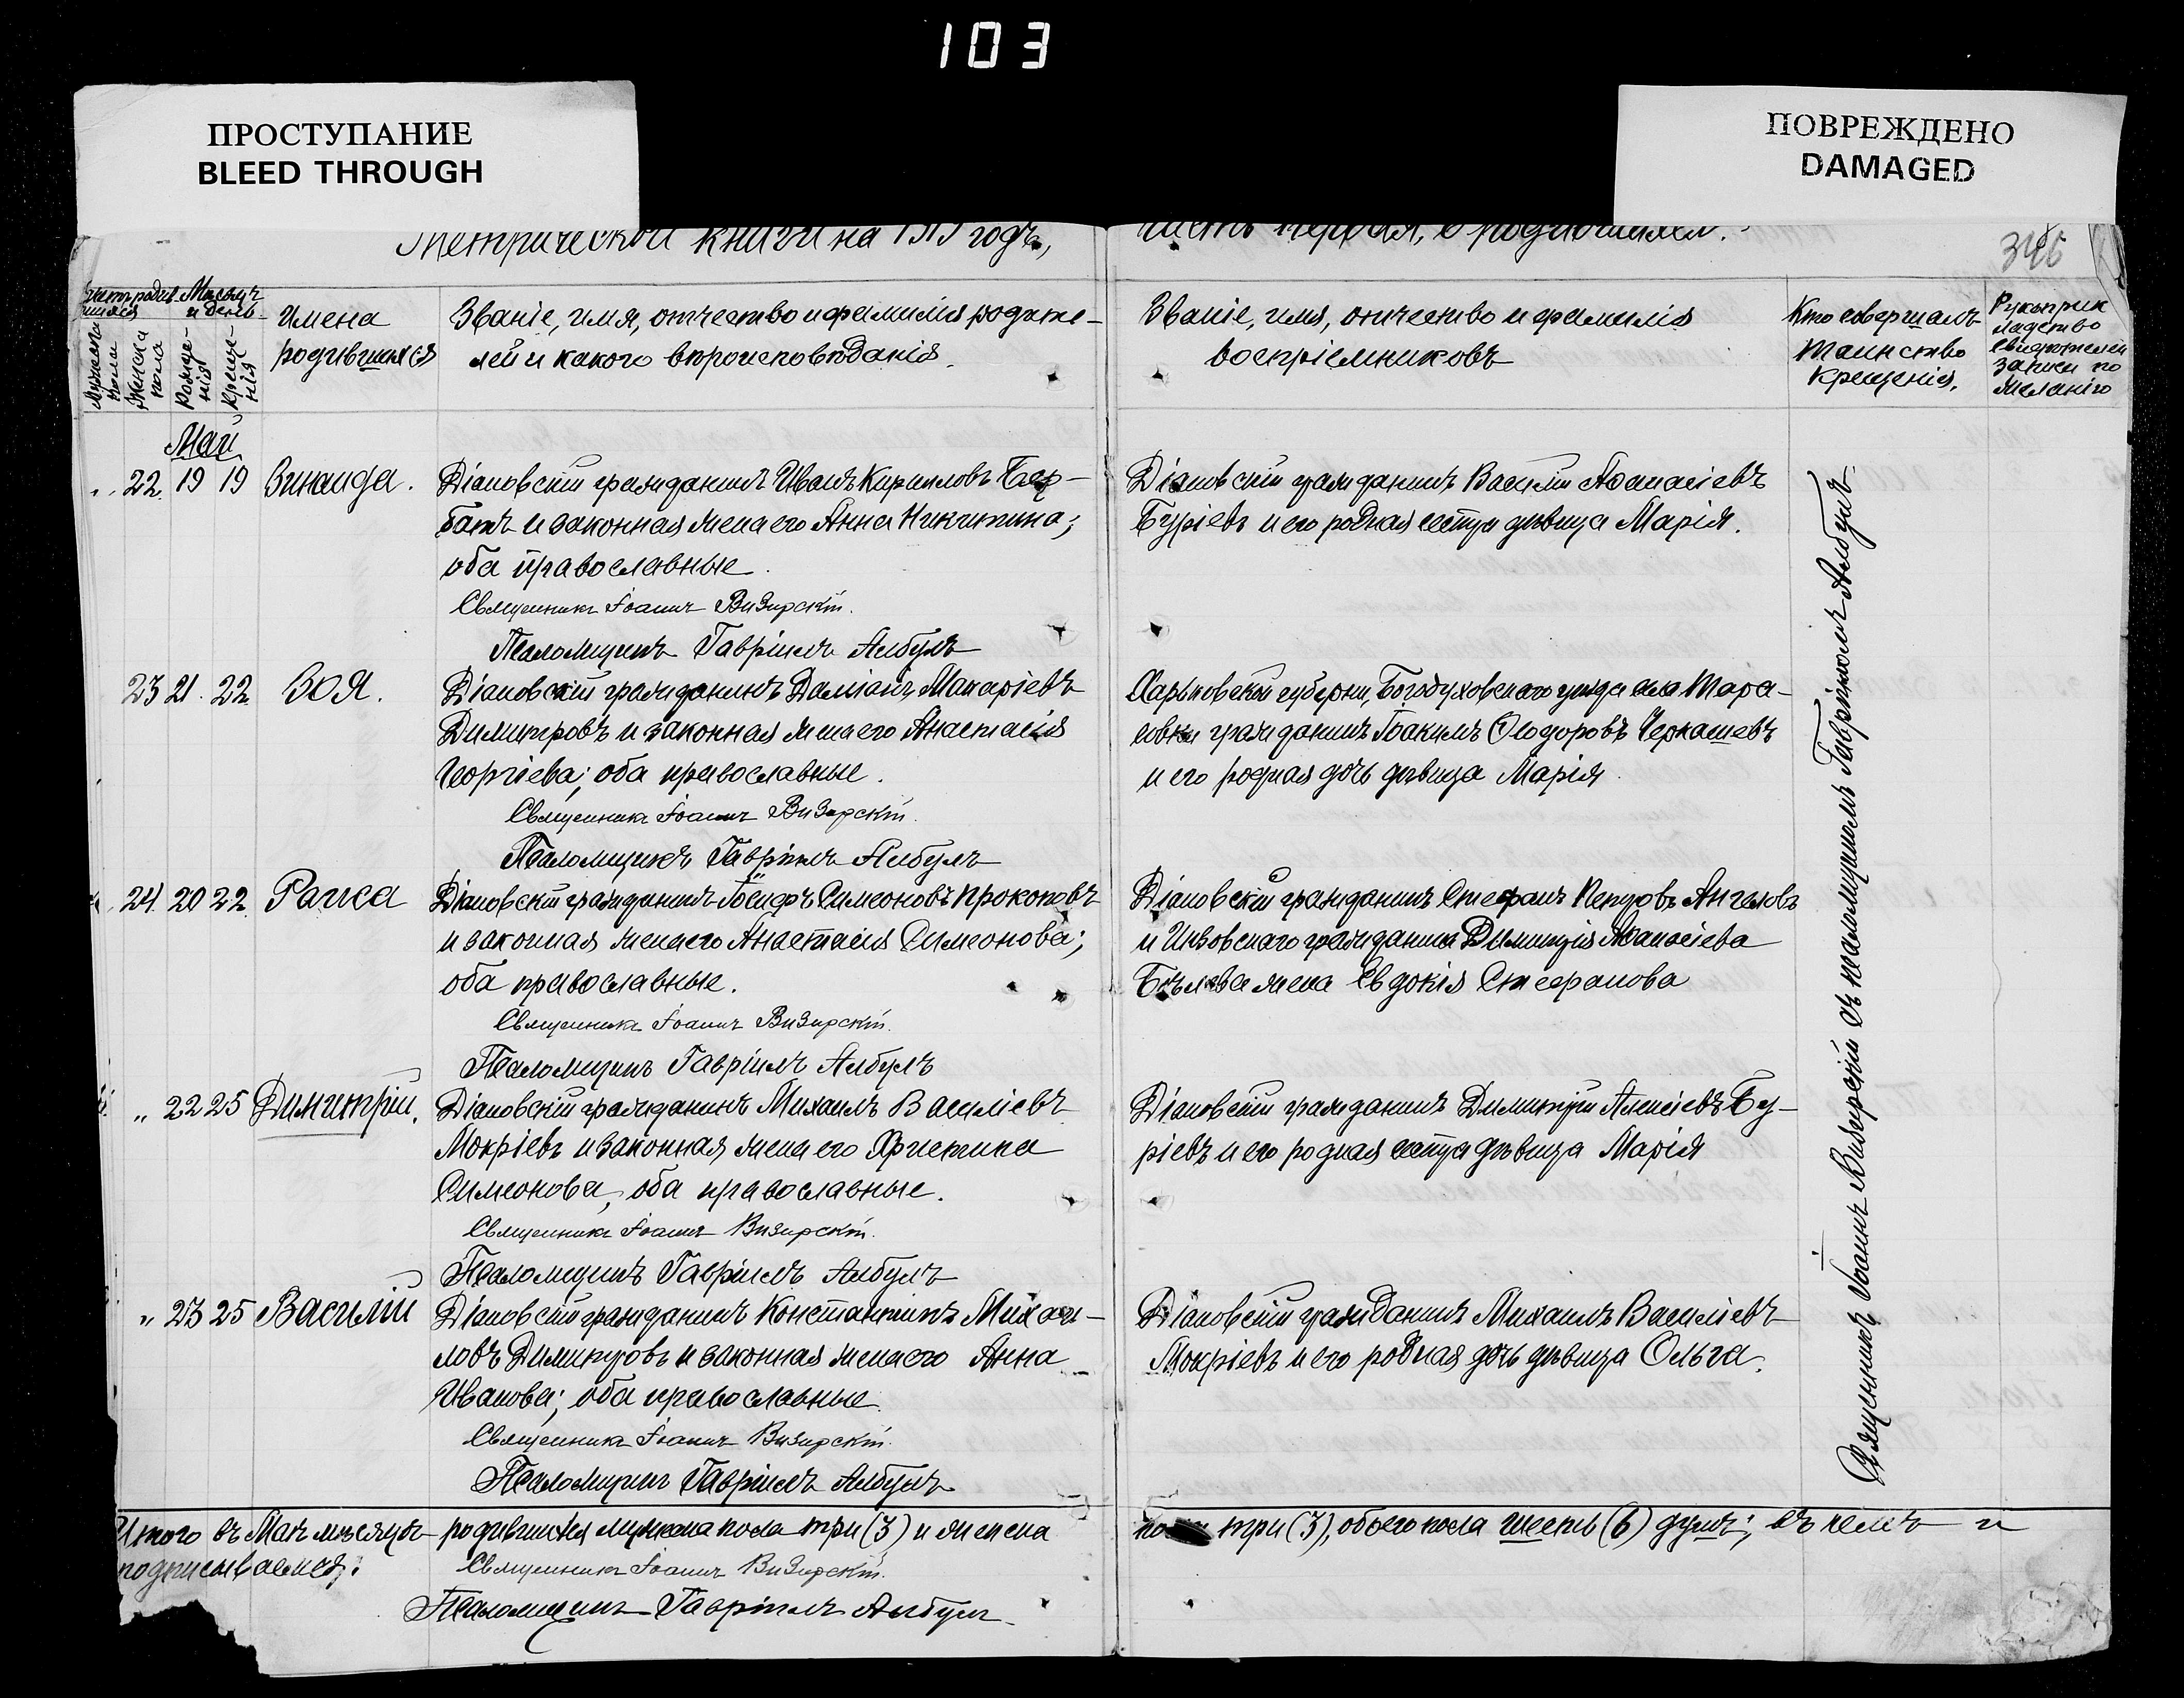 103
ПРОСТУПАНИЕ
BLEED THROUGH
ПОВРЕЖДЕНО
DAMAGED
Метрической книги на годъ,
часть первая, о родившихся.
346
Мѣсяцъ и день
Мужска пола
Женска пола
Рожде-
нія
Креще-
нія
Имена
родившихся
Званіе, имя, отчество и фамилія родите-
лей и какого вѣроисповѣданія.
Званіе, имя, отчество и фамилія
воспріемниковъ
Кто совершалъ
таинство
крещенія.
Рукоприк
ладство
свидѣтелей
записи по
желанію
Май
22. 19 19 Зинаида.
Діановскій гражданинъ Иванъ Кирилловъ
и законная жена его Анна Никитина;
оба православные.
Священникъ Іоаннъ Визирскій.
Псаломщикъ Гавріилъ Албулъ
Діановскій гражданинъ Василій Аѳанасіевъ
Буріевъ и его родная сестра дѣвица Марія.
23 21. 22. Зоя.
Діановскій гражданинъ Даміанъ Макаріевъ
Димитровъ и законная жена его Анастасія
Георгіева; оба православные.
Священникъ Іоаннъ Визирскій.
Псаломщикъ Гавріилъ Албулъ
Харьковской губерніи, Богодуховскаго уѣзда села Тара-
совки гражданинъ Іоакимъ Ѳеодоровъ Черкашевъ
и его родная дочь дѣвица Марія.
24. 20 22. Раиса
Діановскій гражданинъ Іосифъ Симеоновъ Прокоповъ
и законная жена его Анастасія Симеонова;
оба православные.
Священникъ Іоаннъ Визирскій.
Псаломщикъ Гавріилъ Албулъ
Діановскій гражданинъ Стефанъ Петровъ Ангеловъ
и Инзовскаго гражданина Димитрія Аѳанасіева
жена Евдокія Стефанова
" 22 25 Димитрій.
Діановскій гражданинъ Михаилъ Василіевъ
Мокріевъ и законная жена его Христина
Симеонова, оба православные.
Священникъ Іоаннъ Визирскій.
Псаломщикъ Гавріилъ Албулъ
Діановскій гражданинъ Димитрій Алексіевъ Бу-
ріевъ и его родная сестра дѣвица Марія
" 23 25 Василій
Діановскій гражданинъ Константинъ Михаи-
ловъ Димитровъ и законная жена его Анна
Иванова; оба православные.
Священникъ Іоаннъ Визирскій.
Псаломщикъ Гавріилъ Албулъ
Діановскій гражданинъ Михаилъ Василіевъ
Мокріевъ и его родная дочь дѣвица Ольга.
Священникъ Іоаннъ Визирскій съ псаломщикомъ Гавріиломъ Албулъ
Итого въ Маѣ мѣсяцѣ родившихся мужска пола три (3) и женска
три (3), обоего пола шесть (6) душъ; въ чемъ и
подписываемся:
Священникъ Іоаннъ Визирскій.
Псаломщикъ Гавріилъ Албулъ